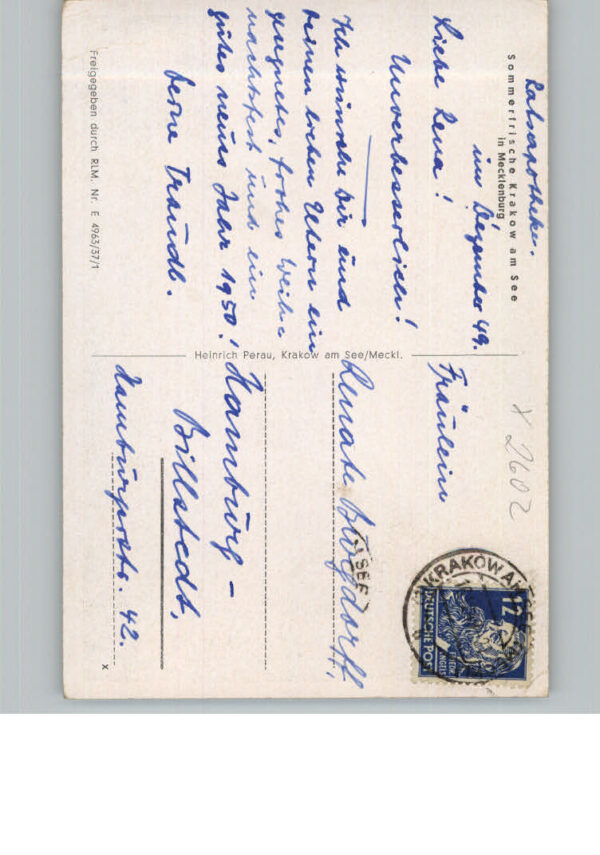 Ratsapotheke.
Sommerfrische Krakow am See
in Mecklenburg
im Dezember 49.
Liebe Rena!
Unverbesserliche!
Ich wünsche Dir und
Deinen lieben Eltern ein
gesegnetes, frohes Weih-
nachtsfest und ein
gutes neues Jahr 1950!
Deine Traudl.
Freigegeben durch RLM. Nr. E 4963/37/1
Heinrich Perau, Krakow am See/Meckl.
X 2602
KRAKOW AM
SEE
12
DEUTSCHE POST
Fräulein
Renate Brogdorff,
Hamburg-
Billstedt,
Hamburgerstr. 42.
x